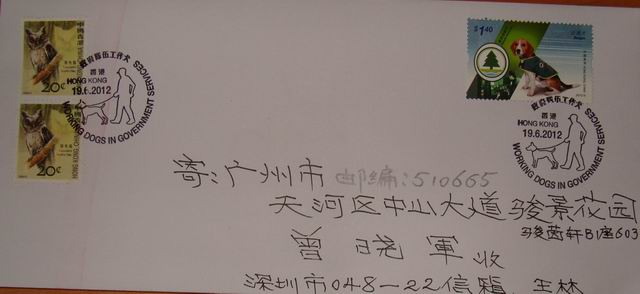 20¢
20¢
$1.40
政府部門工作犬
香港
HONG KONG
19.6.2012
WORKING DOGS IN GOVERNMENT SERVICES
香港
HONG KONG
19.6.2012
WORKING DOGS IN GOVERNMENT SERVICES
寄:广州市 邮编:510665
天河区中山大道骏景花园
骏茵轩B座603
曾晓軍 收
深圳市048-22信箱 王林